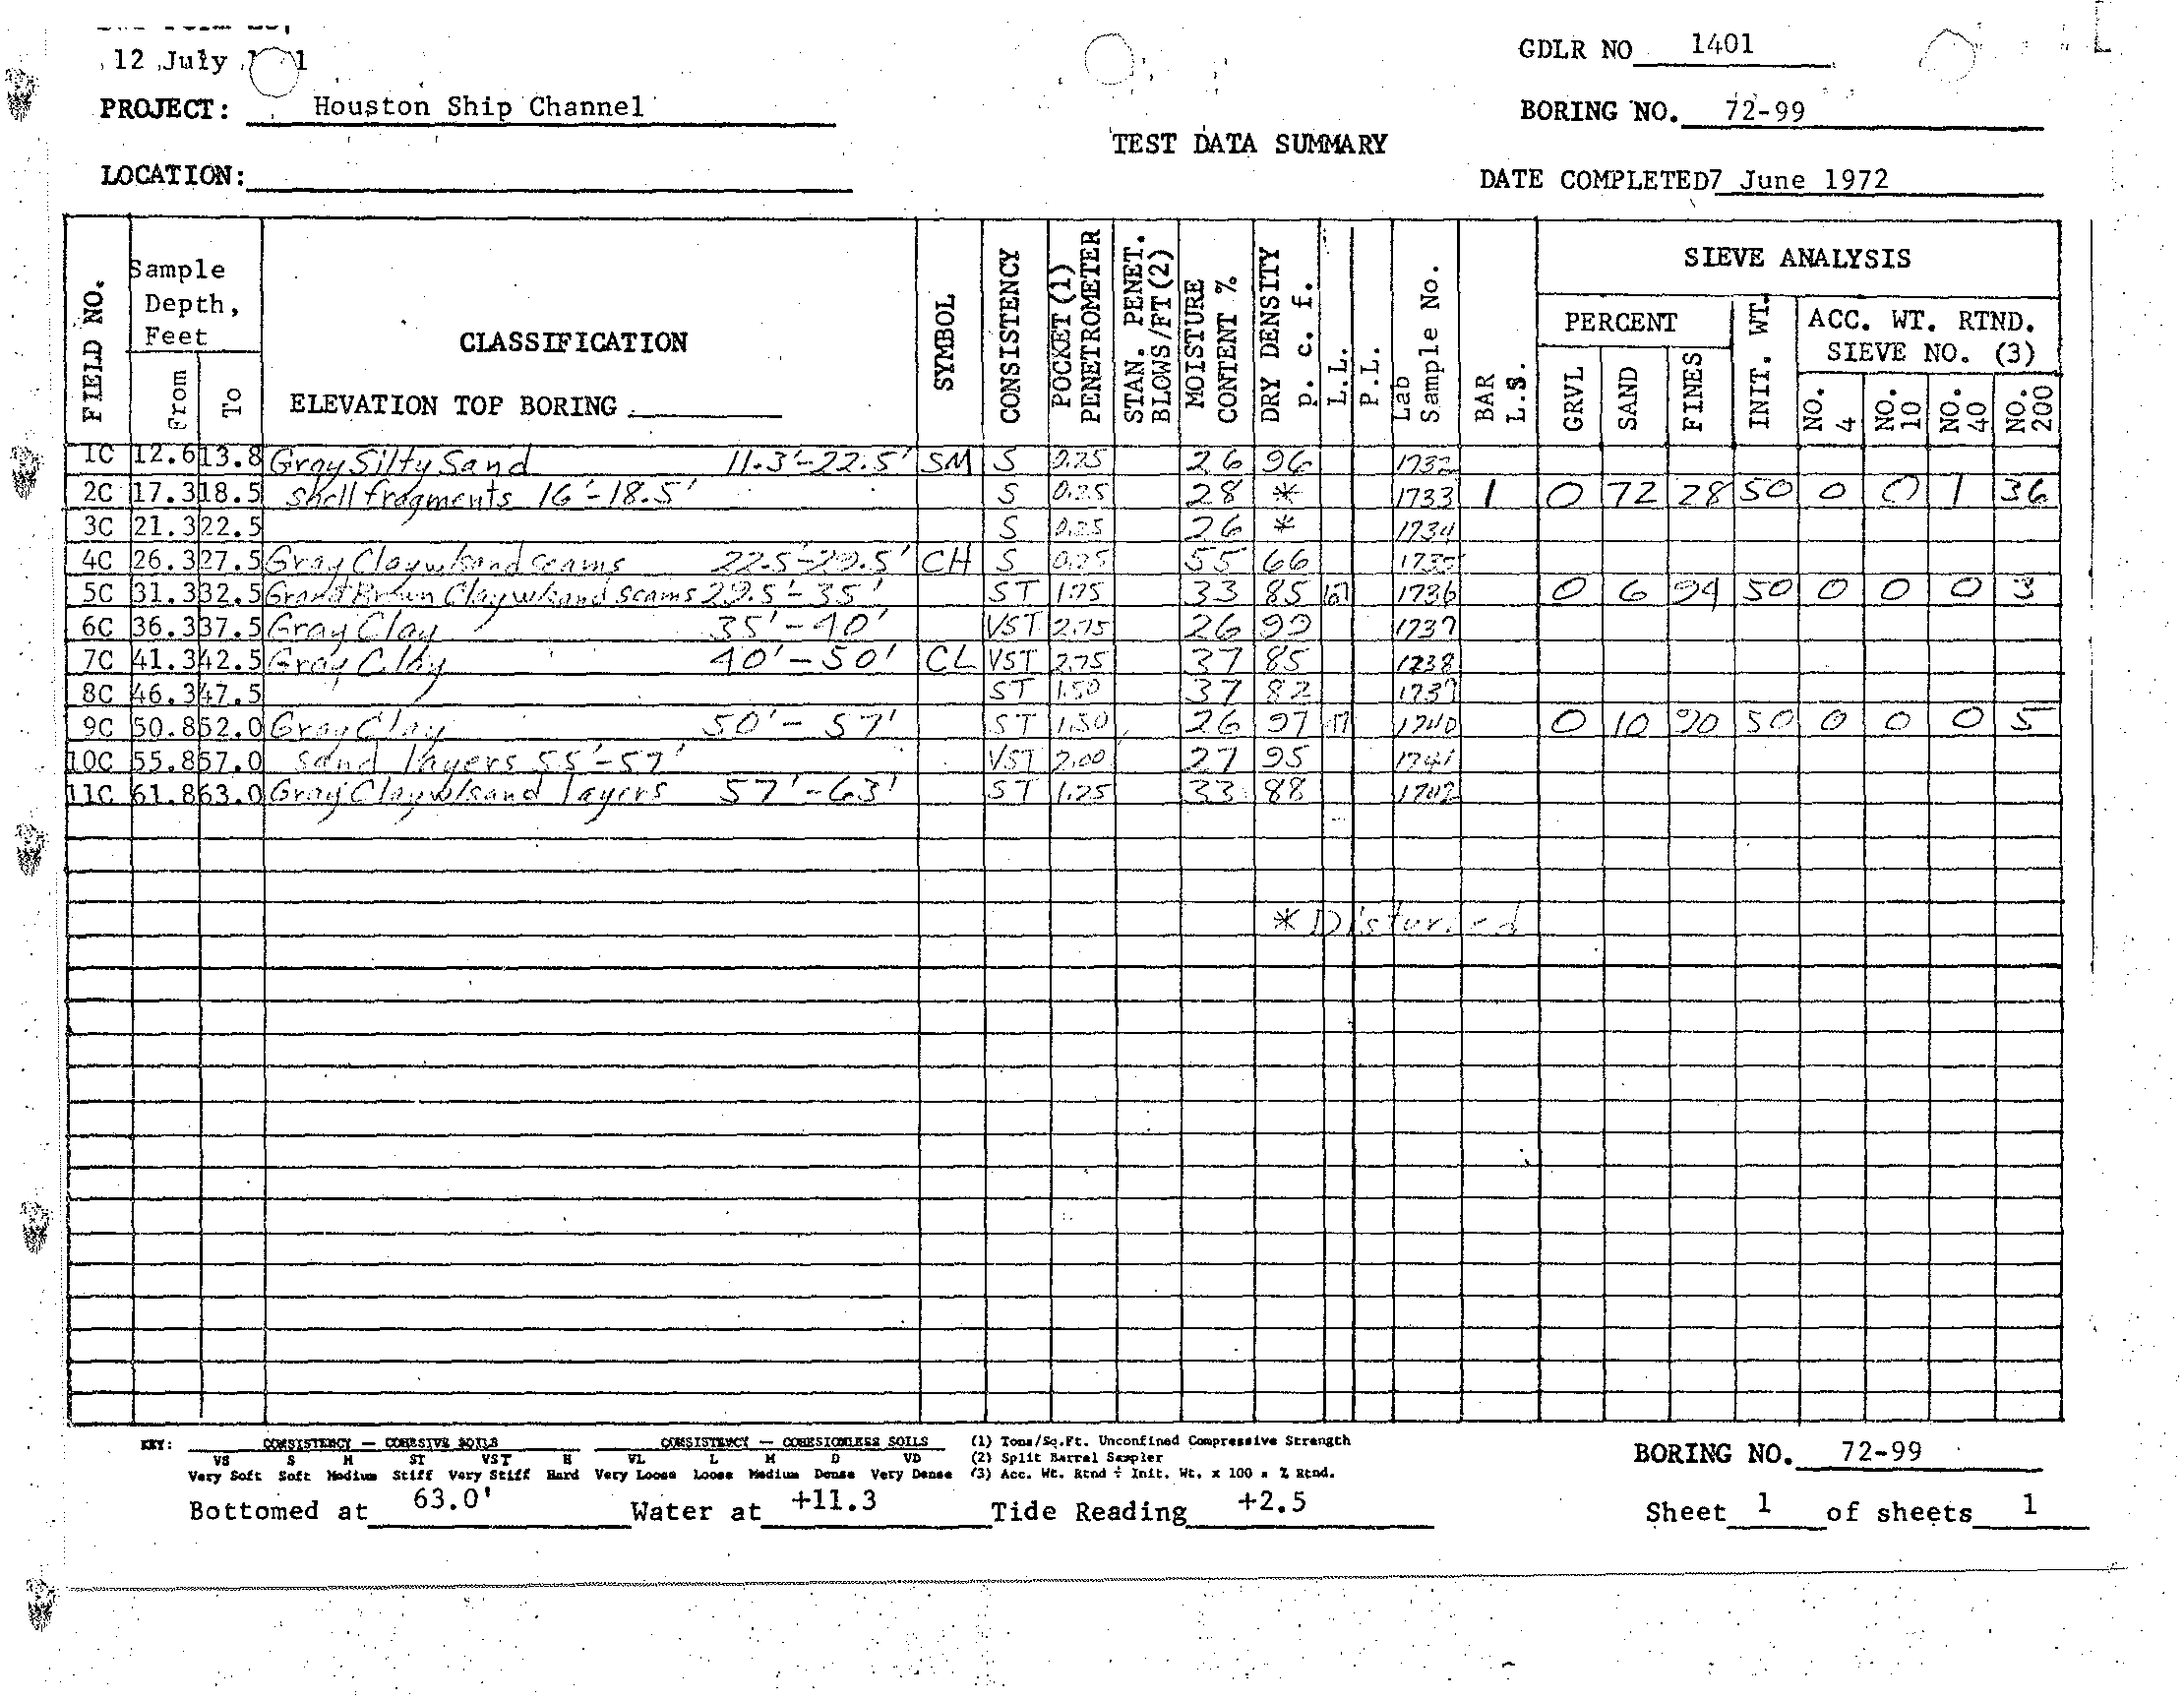 12 July
GDLR NO 1401
PROJECT: Houston Ship Channel
BORING NO. 72-99
TEST DATA SUMMARY
LOCATION:
DATE COMPLETED 7 June 1972
FIELD NO.
Sample Depth, Feet
From
To
CLASSIFICATION
ELEVATION TOP BORING
SYMBOL
CONSISTENCY
POCKET (1) PENETROMETER
STAN. PENET. BLOWS/FT (2)
MOISTURE CONTENT %
DRY DENSITY p. c. f.
L.L.
P.L.
Lab Sample No.
BAR L.S.
SIEVE ANALYSIS
PERCENT
GRVL
SAND
FINES
INIT. WT.
ACC. WT. RTND. SIEVE NO. (3)
NO. 4
NO. 10
NO. 40
NO. 200
1C 12.6 13.8 Gray Silty Sand 11.3'-22.5' SM S 0.25 26 96 1732
2C 17.3 18.5 shell fragments 16'-18.5' S 0.25 28 * 1733 1 0 72 28 50 0 0 1 36
3C 21.3 22.5 S 0.25 26 * 1734
4C 26.3 27.5 Gray Clay w/sand seams 22.5'-29.5' CH S 0.25 55 66 1735
5C 31.3 32.5 Gr and Brown Clay w/sand seams 29.5'-35' ST 1.75 33 85 67 1736 0 6 94 50 0 0 0 3
6C 36.3 37.5 Gray Clay 35'-40' VST 2.75 26 99 1737
7C 41.3 42.5 Gray Clay 40'-50' CL VST 2.75 37 85 1738
8C 46.3 47.5 ST 1.50 37 82 1739
9C 50.8 52.0 Gray Clay 50'-57' ST 1.50 26 97 1740 0 10 90 50 0 0 0 5
10C 55.8 57.0 sand layers 55'-57' VST 2.00 27 95 1741
11C 61.8 63.0 Gray Clay w/sand layers 57'-63' ST 1.25 33 88 1742
* Disturbed
KEY: CONSISTENCY — COHESIVE SOILS
VS S M ST VST H
Very Soft Soft Medium Stiff Very Stiff Hard
CONSISTENCY — COHESIONLESS SOILS
VL L M D VD
Very Loose Loose Medium Dense Very Dense
(1) Tons/Sq.Ft. Unconfined Compressive Strength
(2) Split Barrel Sampler
(3) Acc. Wt. Rtnd ÷ Init. Wt. x 100 = % Rtnd.
BORING NO. 72-99
Bottomed at 63.0' Water at +11.3 Tide Reading +2.5
Sheet 1 of sheets 1